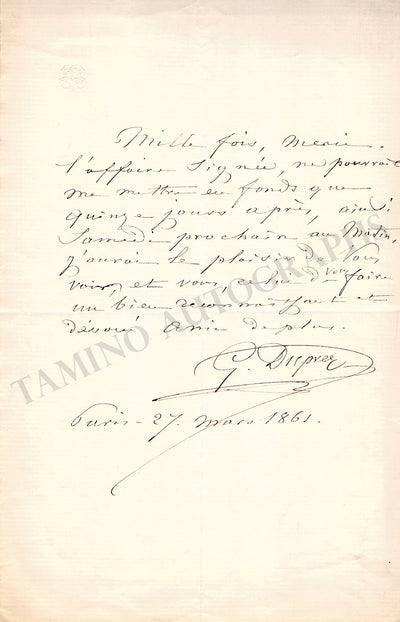 Mille fois, merci.
l'affaire signée, ne pourrait
me mettre en fonds que
quinze jours après, ainsi
Samedi prochain au Matin,
j'aurai le plaisir de vous
voir, et vous, celui de vous faire
un bien reconnaissant et
dévoué Ami de plus.
G. Duprez
Paris - 27. mars 1861.
TAMINO AUTOGRAPHS